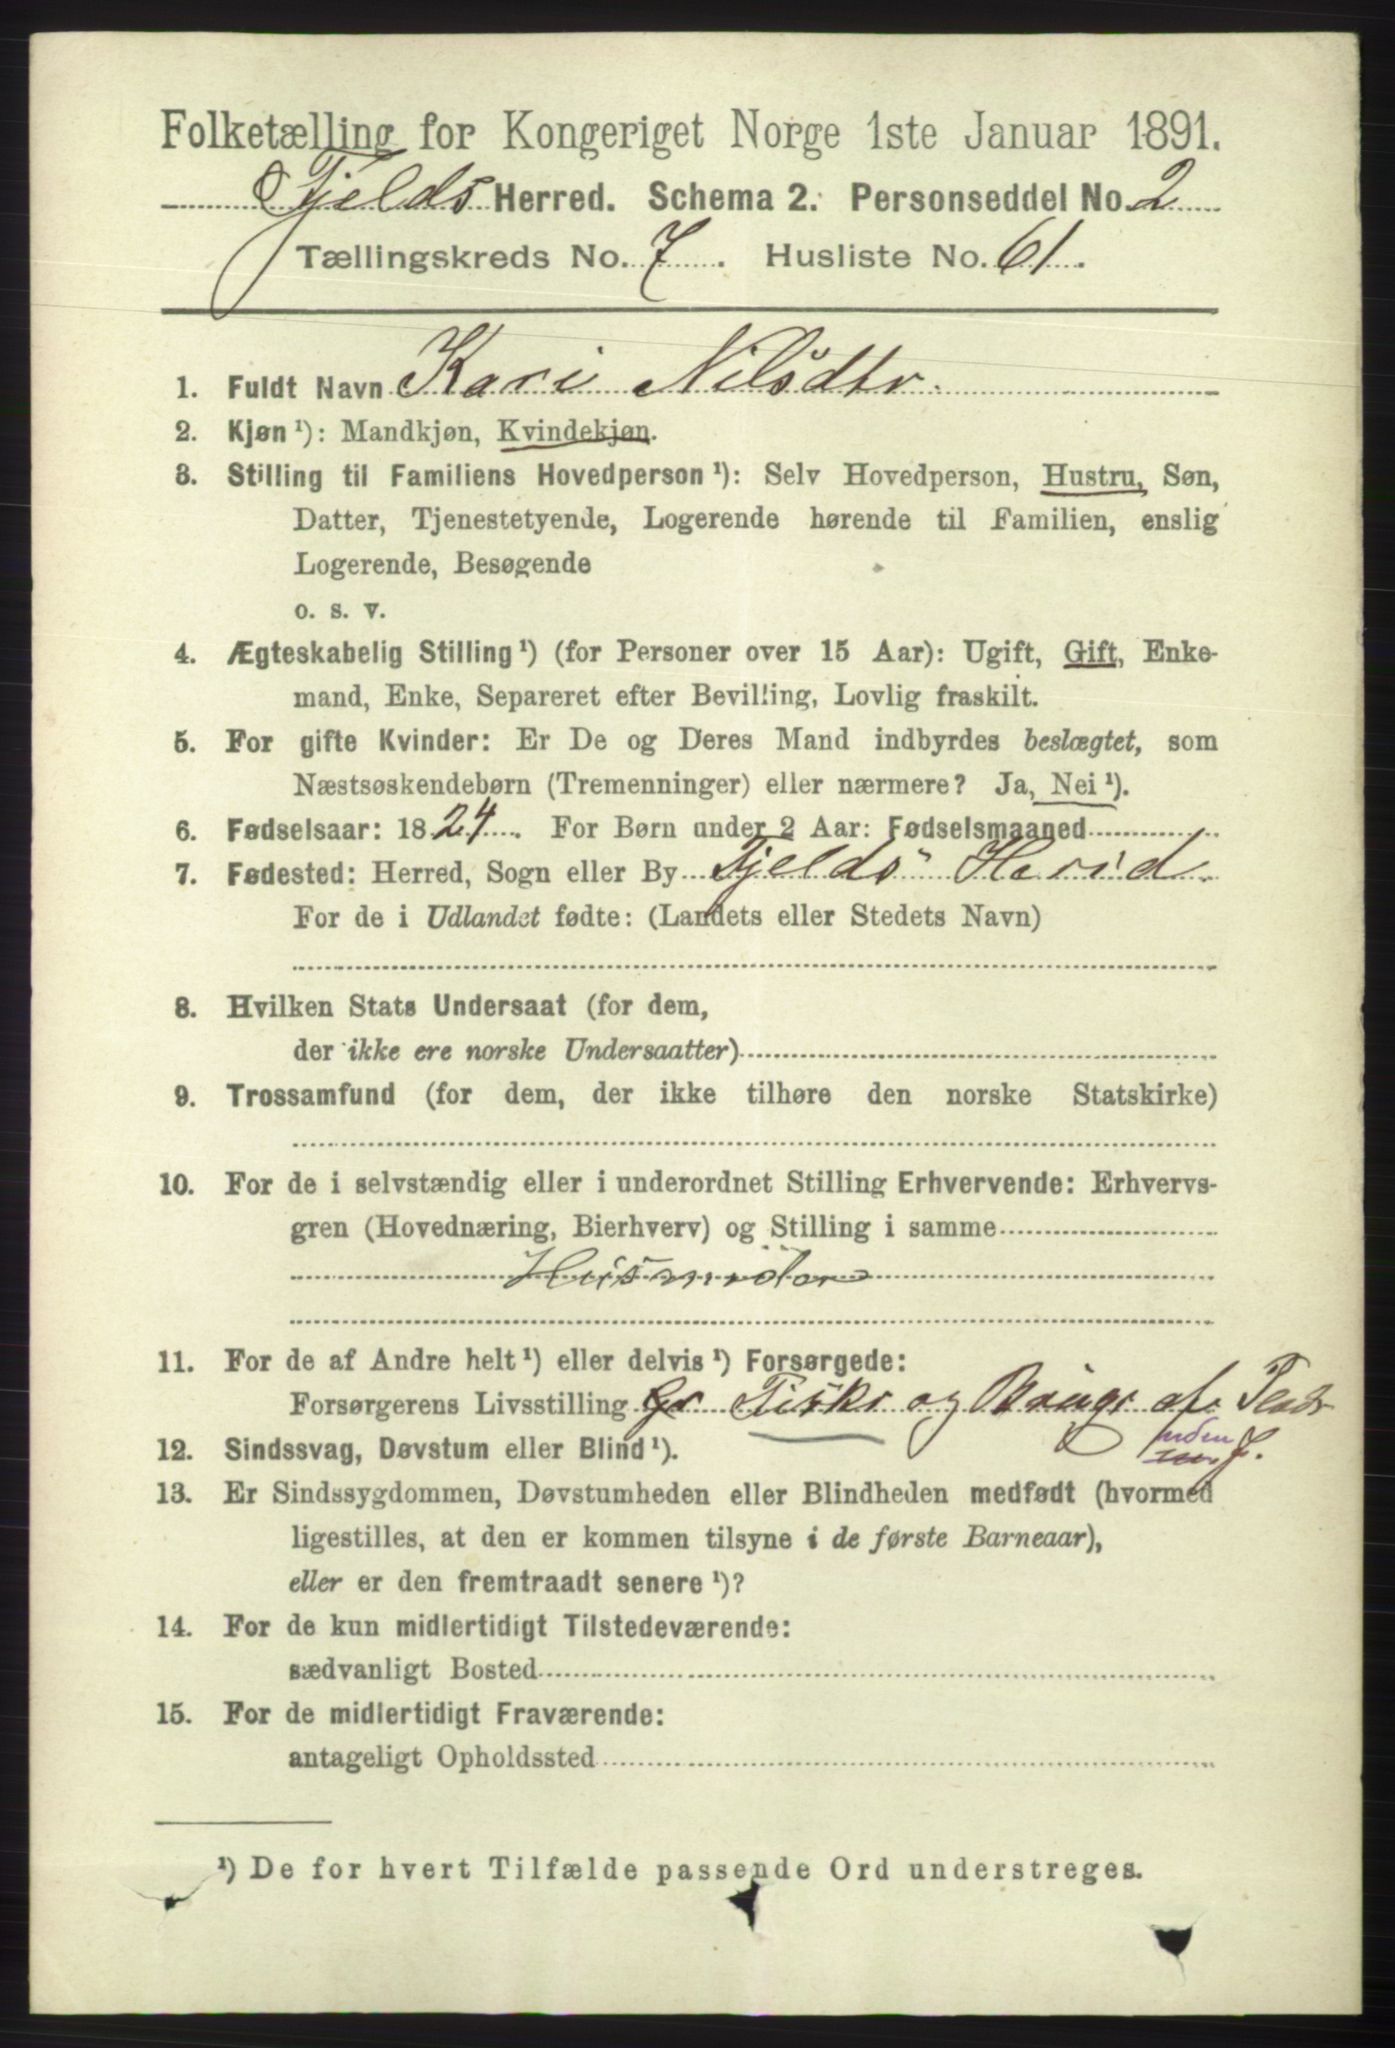 Folketælling for Kongeriget Norge 1ste Januar 1891.
Fjelds Herred. Schema 2. Personseddel No. 2
Tællingskreds No. 7. Husliste No. 61.
1. Fuldt Navn Kari Nilsdtr.
2. Kjøn ¹): Mandkjøn, Kvindekjøn.
3. Stilling til Familiens Hovedperson ¹): Selv Hovedperson, Hustru, Søn,
Datter, Tjenestetyende, Logerende hørende til Familien, enslig
Logerende, Besøgende
o. s. v.
4. Ægteskabelig Stilling ¹) (for Personer over 15 Aar): Ugift, Gift, Enke-
mand, Enke, Separeret efter Bevilling, Lovlig fraskilt.
5. For gifte Kvinder: Er De og Deres Mand indbyrdes beslægtet, som
Næstsøskendebørn (Tremenninger) eller nærmere? Ja, Nei ¹).
6. Fødselsaar: 1824. For Børn under 2 Aar: Fødselsmaaned
7. Fødested: Herred, Sogn eller By Fjelds Herid.
For de i Udlandet fødte: (Landets eller Stedets Navn)
8. Hvilken Stats Undersaat (for dem,
der ikke ere norske Undersaatter)
9. Trossamfund (for dem, der ikke tilhøre den norske Statskirke)
10. For de i selvstændig eller i underordnet Stilling Erhvervende: Erhvervs-
gren (Hovednæring, Bierhverv) og Stilling i samme
11. For de af Andre helt ¹) eller delvis ¹) Forsørgede:
Forsørgerens Livsstilling Fisker og af
uden J.
12. Sindssvag, Døvstum eller Blind ¹).
13. Er Sindssygdommen, Døvstumheden eller Blindheden medfødt (hvormed
ligestilles, at den er kommen tilsyne i de første Barneaar),
eller er den fremtraadt senere ¹)?
14. For de kun midlertidigt Tilstedeværende:
sædvanligt Bosted
15. For de midlertidigt Fraværende:
antageligt Opholdssted
¹) De for hvert Tilfælde passende Ord understreges.